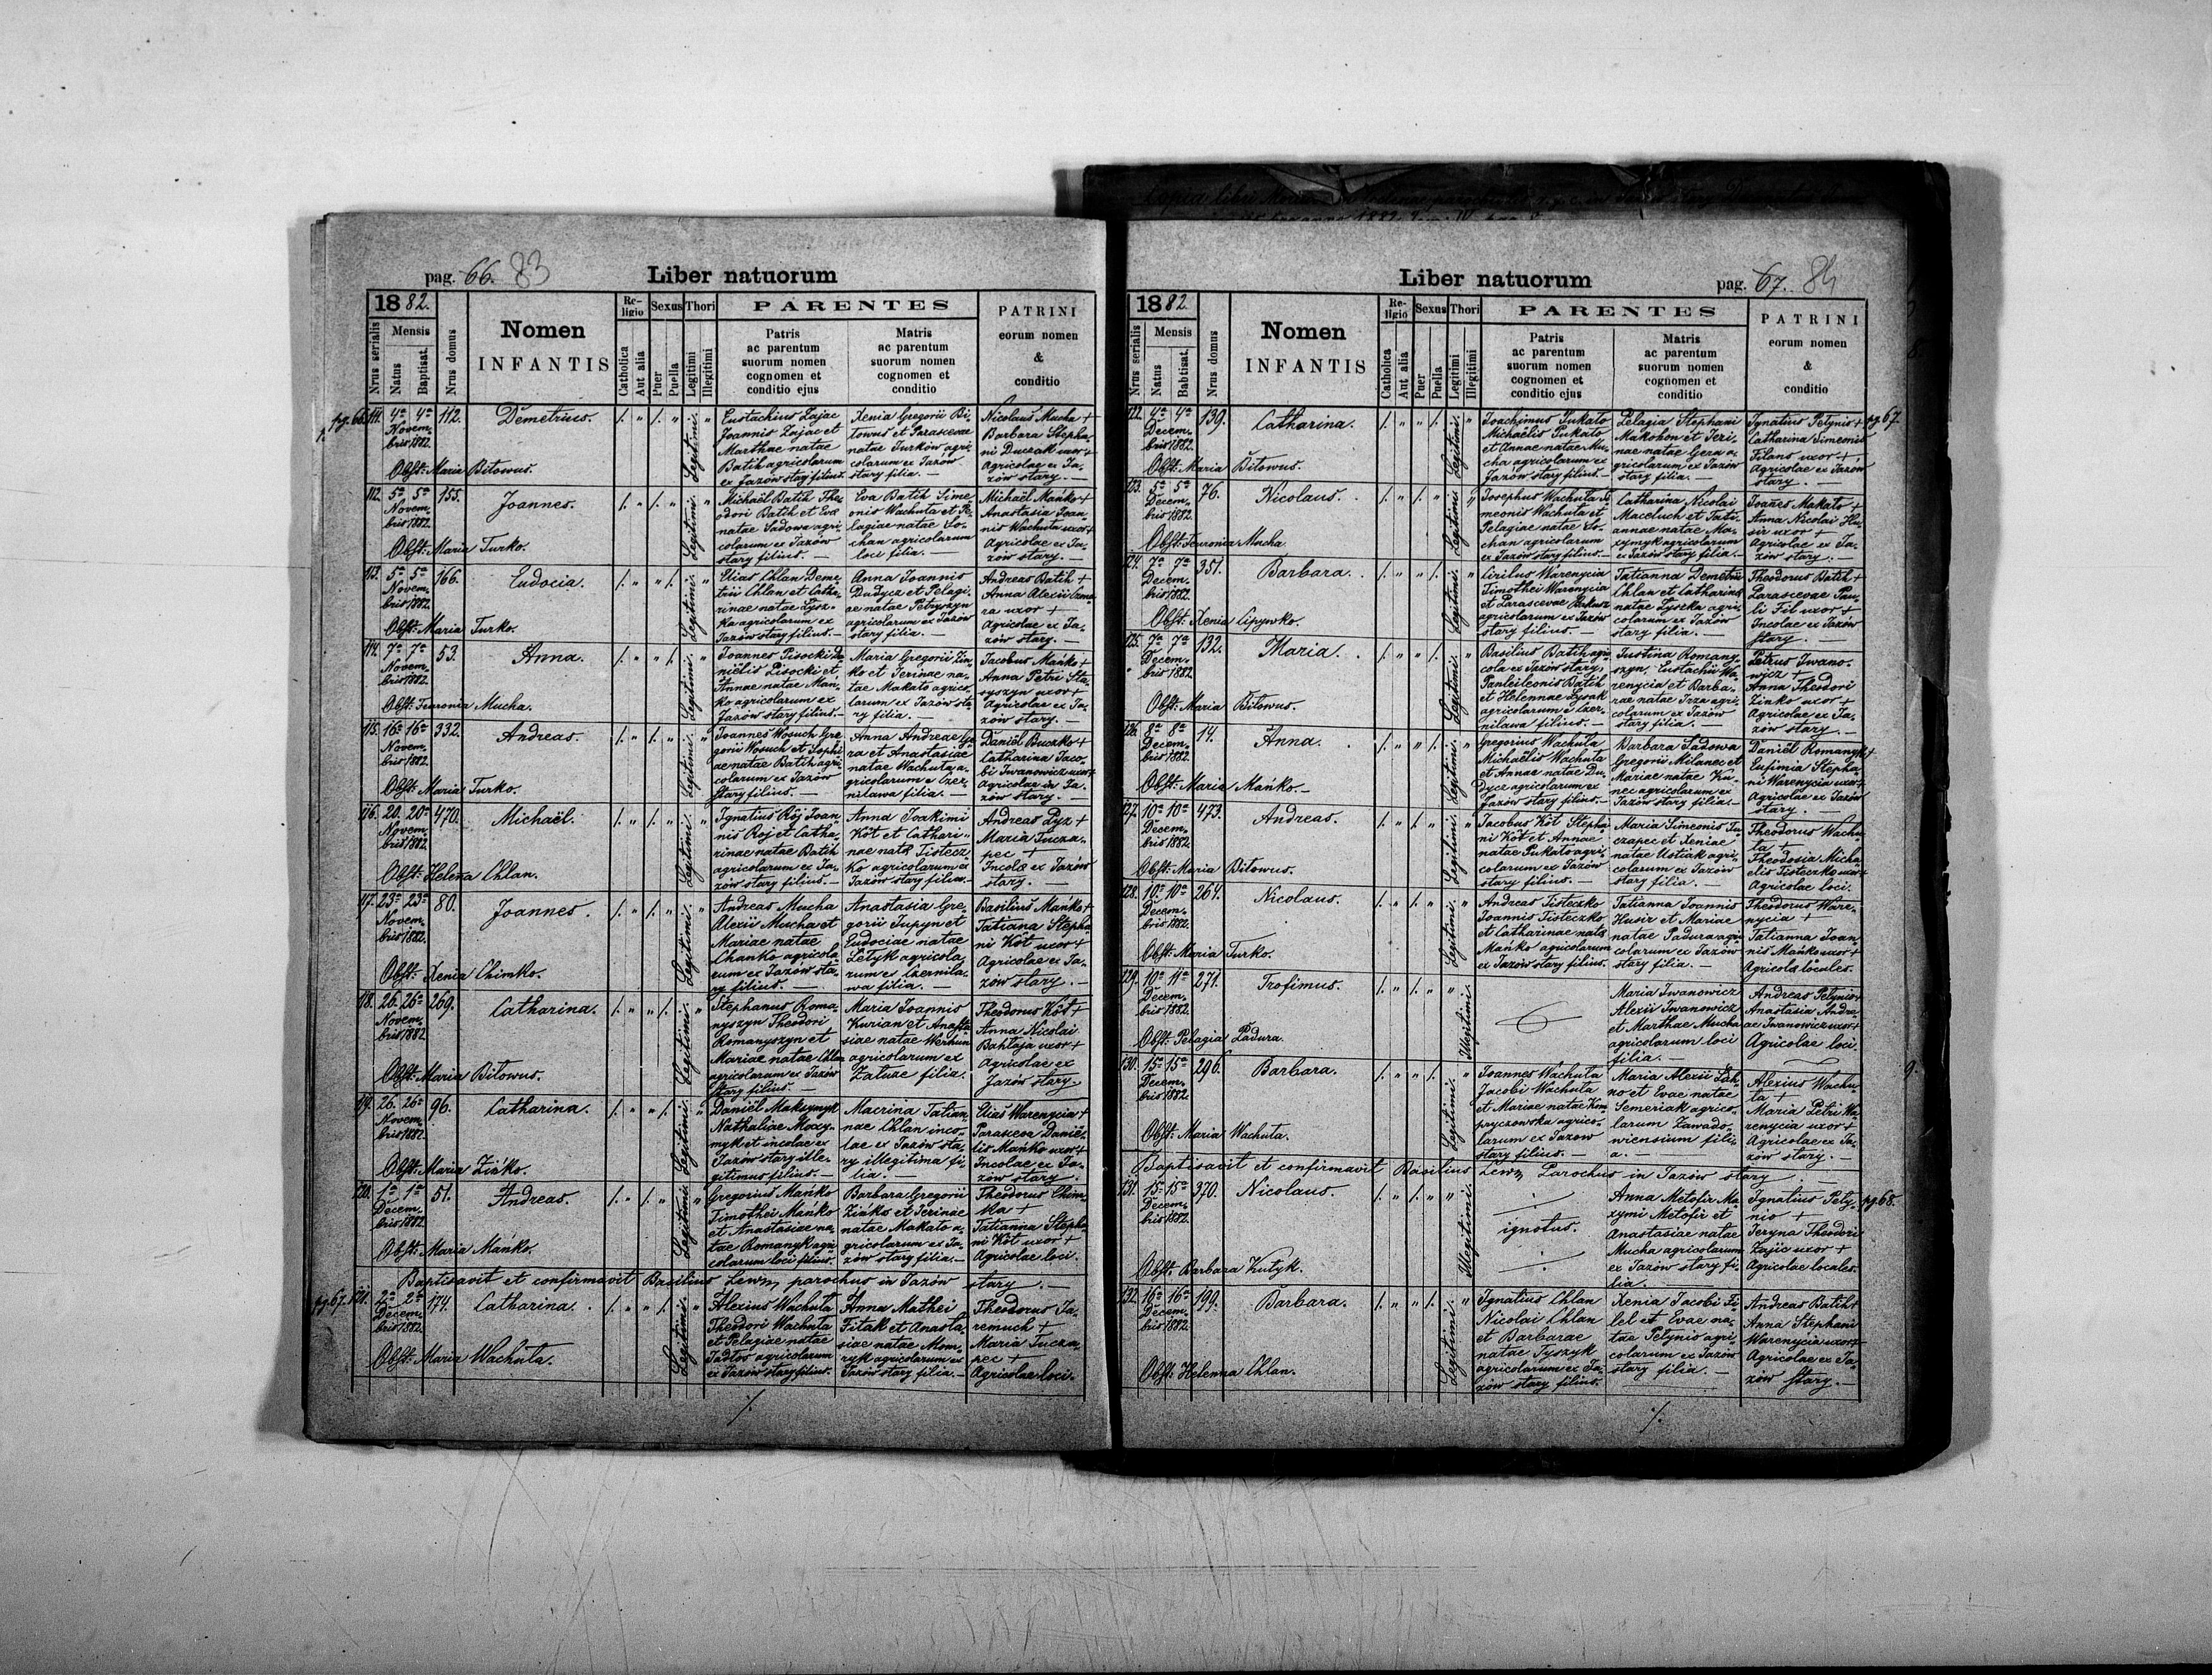 pag. 66. 83
Liber natuorum
1882.
Nrus serialis
Mensis
Natus
Baptisat.
Nrus domus
Nomen
INFANTIS
Religio
Catholica
Aut alia
Sexus
Puer
Puella
Thori
Legitimi
Illegitimi
PARENTES
Patris
ac parentum
suorum nomen
cognomen et
conditio ejus
Matris
ac parentum
suorum nomen
cognomen et
conditio
PATRINI
eorum nomen
&
conditio
111. 4a 4a Novembris 1882. 112. Demetrius. Legitimi.
Obst: Maria Bitowus.
Eustachius Zajac
Joannis Zajac et
Marthae natae
Batih agricolarum
ex Jazów stary filius.
Xenia Gregorii Bi-
towus et Parascevae
natae Turków agri-
colarum ex Jazów
stary filia. —
Nicolaus Mucha +
Barbara Stepha-
ni Duczak uxor +
Agricolae ex Ja-
zów stary. —
112. 5a 5a Novembris 1882. 155. Joannes. Legitimi.
Obst: Maria Turko.
Michaël Batih The-
odori Batih et Evae
natae Sadowa agri-
colarum ex Jazów
stary filius. —
Eva Batih Sime-
onis Wachuta et Pe-
lagiae natae So-
chan agricolarum
loci filia. —
Michaël Mańko +
Anastasia Joan-
nis Wachuta uxor +
Agricolae ex Ja-
zów stary.
113. 5a 5a Novembris 1882. 166. Eudocia. Legitimi.
Obst: Maria Turko.
Elias Chlan Deme-
trii Chlan et Catha-
rinae natae Łysz-
ka agricolarum ex
Jazów stary filius. —
Anna Joannis
Dudycz et Pelagi-
ae natae Petryszyn
agricolarum ex Jazów
stary filia. —
Andreas Batih +
Anna Alexii
uxor +
Agricolae ex Ja-
zów stary. —
114. 7a 7a Novembris 1882. 53. Anna. Legitimi.
Obst: Feuronia Mucha.
Joannes Pisocki Da-
niëlis Pisocki et
Annae natae Mań-
ko agricolarum ex
Jazów stary filius. —
Maria Gregorii Zin-
ko et Jerinae na-
tae Makato agrico-
larum ex Jazów sta-
ry filia. —
Jacobus Mańko +
Anna Petri Sta-
ryszyn uxor +
Agricolae ex Ja-
zów stary. —
115. 16a 16a Novembris 1882. 332. Andreas. Legitimi.
Obst: Maria Turko.
Joannes Wosuch Gre-
gorii Wosuch et Sophi-
ae natae Batih agri-
colarum ex Jazów
stary filius. —
Anna Andreae Ge-
ra et Anastasiae
natae Wachuta a-
gricolarum e Czer-
nilawa filia. —
Daniël Buczko +
Catharina Jaco-
bi Iwanowicz uxor +
Agricolae in Ja-
zów stary. —
116. 20. 20a Novembris 1882. 470. Michaël. Legitimi.
Obst: Helena Chlan.
Ignatius Rój Joan-
nis Rój et Catha-
rinae natae Batih
agricolarum ex Ja-
zów stary filius. —
Anna Joakimi
Kôt et Cathari-
nae natae Tistecz-
ko agricolarum ex
Jazów stary filia. —
Andreas Pyz +
Maria Tucza-
pec +
Incolae ex Jazów
stary. —
117. 23a 23a Novembris 1882. 80. Joannes. Legitimi.
Obst: Xenia Chimko.
Andreas Mucha
Alexii Mucha et
Mariae natae
Chanko agricola-
rum ex Jazów sta-
ry filius. —
Anastasia Gre-
gorii Jupyn et
Eudociae natae
Letyk agricola-
rum ex Czernila-
wa filia. —
Basilius Mańko +
Tatiana Stepha-
ni Kôt uxor +
Agricolae ex Ja-
zów stary. —
118. 26. 26a Novembris 1882. 269. Catharina. Legitimi.
Obst: Maria Bitowus.
Stephanus Roma-
nyszyn Theodori
Romanyszyn et
Mariae natae Chlan
agricolarum ex Jazów
stary filius. —
Maria Joannis
Kurian et Anasta-
siae natae Werhun
agricolarum ex
Zaluze filia.
Theodorus Kôt +
Anna Nicolai
Bahlaja uxor +
Agricolae ex
Jazów stary.
119. 26. 26a Novembris 1882. 96. Catharina. Legitimi.
Obst: Maria Zińko.
Daniël Maksymyk
Nathaliae Maxy-
myk et incolae ex
Jazów stary ille-
gitimus filius. —
Macrina Tatian-
nae Chlan inco-
lae ex Jazów sta-
ry illegitima fi-
lia. —
Elias Warenycia +
Parasceva Danië-
lis Mańko uxor +
Incolae ex Ja-
zów stary.
120. 1a 1a Decembris 1882. 51. Andreas. Legitimi.
Obst: Maria Mańko.
Gregorius Mańko
Timothei Mańko
et Anastasiae na-
tae Romanyk agri-
colarum loci filius.
Barbara Gregorii
Zińko et Jerinae
natae Makato a-
gricolarum ex Ja-
zów stary filia. —
Theodorus Chim-
ka +
Tatianna Stepha-
ni Kôt uxor +
Agricolae loci.
Baptisavit et confirmavit Basilius parochus in Jazów stary. —
pg. 67. 121. 2a 2a Decembris 1882. 174. Catharina. Legitimi.
Obst: Maria Wachuta.
Alexius Wachuta
Theodori Wachuta
et Pelagiae natae
agricolarum
ex Jazów stary filius.
Anna Mathei
Fitak et Anasta-
siae natae Mom-
ryk agricolarum ex
Jazów stary filia. —
Theodorus Ja-
remuch +
Maria Tucza-
pec +
Agricolae loci.
Liber natuorum
pag. 67. 84
1882.
Nrus serialis
Mensis
Natus
Babtisat.
Nrus domus
Nomen
INFANTIS
Religio
Catholica
Aut alia
Sexus
Puer
Puella
Thori
Legitimi
Illegitimi
PARENTES
Patris
ac parentum
suorum nomen
cognomen et
conditio ejus
Matris
ac parentum
suorum nomen
cognomen et
conditio
PATRINI
eorum nomen
&
conditio
122. 4a 4a Decembris 1882. 139. Catharina. Legitimi.
Obst: Maria Bitowus.
Joachimus Pukato
Michaëlis Pukato
et Annae natae Mu-
cha agricolarum ex
Jazów stary filius. —
Pelagia Stephani
Makohon et Jeri-
nae natae Gera a-
gricolarum ex Jazów
stary filia. —
Ignatius Petynio +
Catharina Simeonis
Filans uxor +
Agricolae ex Jazów
stary. —
pg 67.
123. 5a 5a Decembris 1882. 76. Nicolaus. Legitimi.
Obst: Feuronia Mucha
Josephus Wachuta Si-
meonis Wachuta et
Pelagiae natae So-
chan agricolarum
ex Jazów stary filius. —
Catharina Nicolai
Maceluch et Tati-
annae natae Ma-
xymyk agricolarum
ex Jazów stary filia. —
Joanes Makato +
Anna Nicolai Hu-
sir uxor +
Agricolae ex Ja-
zów stary. —
124. 7a 7a Decembris 1882. 351. Barbara. Legitimi.
Obst: Xenia Cipywko.
Cirilus Warenycia
Timothei Warenycia
et Parascevae
agricolarum ex Jazów
stary filius. —
Tatianna Demetrii
Chlan et Catharinae
natae Łyszka agri-
colarum ex Jazów
stary filia. —
Theodorus Batih +
Parascevae Pau-
li Fil uxor +
Incolae ex Jazów
stary.
125. 7a 7a Decembris 1882. 132. Maria. Legitimi.
Obst: Maria Bitowus.
Basilius Batih agri-
cola ex Jazów stary,
Panteleonis Batih
et Helennae Lysak
agricolarum e Czer-
nilawa filius. —
Justina Romany-
szyn, Eustachii Wa-
renycia et Barba-
rae natae Irza agri-
colarum ex Jazów
stary filia. —
Petrus Iwano-
wicz +
Anna Theodori
Zinko uxor +
Agricolae ex Ja-
zów stary. —
126. 8a 8a Decembris 1882. 14. Anna. Legitimi.
Obst: Maria Mańko. —
Gregorius Wachuta
Michaëlis Wachuta
et Annae natae Du-
dycz agricolarum ex
Jazów stary filius. —
Barbara Sadowa
Gregorii Milanec et
Mariae natae Ku-
nec agricolarum ex
Jazów stary filia. —
Daniël Romanyk +
Eufimia Stepha-
ni Warenycia uxor +
Agricolae ex Jazów
stary. —
127. 10a 10a Decembris 1882. 473. Andreas. Legitimi.
Obst: Maria Bitowus.
Jacobus Kôt Stepha-
ni Kôt et Annae
natae Pukato agri-
colarum ex Jazów
stary filius. —
Maria Simeonis Tu-
czapec et Xeniae
natae Ustiak agri-
colarum ex Jazów
stary filia. —
Theodorus Wachu-
ta +
Theodosia Micha-
elis Tisteczko uxor +
Agricolae loci.
128. 10a 10a Decembris 1882. 264. Nicolaus. Legitimi.
Obst: Maria Turko.
Andreas Tisteczko
Joannis Tisteczko
et Catharinae natae
Mańko agricolarum
ex Jazów stary filius.
Tatianna Joannis
Husir et Mariae
natae Padura agri-
colarum ex Jazów
stary filia. —
Theodorus Ware-
nycia +
Tatianna Joan-
nis Mańko uxor +
Agricolae locales.
129. 10a 11a Decembris 1882. 271. Trofimus. Illegitimi.
Obst: Pelagia Padura.
Maria Iwanowicz
Alexii Iwanowicz
et Marthae Mucha
agricolarum loci
filia. —
Andreas Petynio +
Anastasia Andre-
ae Iwanowicz uxor +
Agricolae loci.
130. 15a 15a Decembris 1882. 296. Barbara. Legitimi.
Obst: Maria Wachuta.
Joannes Wachuta
Jacobi Wachuta
et Mariae natae Kom-
pryczowska agrico-
larum ex Jazow
stary filius. —
Maria Alexii
et Evae natae
Semeriak agrico-
larum Zawado-
wiensium fili-
a. —
Alexius Wachu-
ta +
Maria Petri Wa-
renycia uxor +
Agricolae ex Ja-
zów stary. —
Baptisavit et confirmavit Basilius Parochus in Jazów stary
131. 15. 15a Decembris 1882. 370. Nicolaus. Illegitimi.
Obst: Barbara Kutyk.
ignotus.
Anna Metofir Ma-
xymi Metofir et
Anastasiae natae
Mucha agricolarum
ex Jazów stary fi-
lia. —
Ignatius Pety-
nio +
Jeryna Theodori
Zajic uxor +
Agricolae locales.
pg 68.
132. 16a 16a Decembris 1882. 199. Barbara. Legitimi.
Obst: Helenna Chlan.
Ignatius Chlan
Nicolai Chlan
et Barbarae
natae Tyszyk
agricolarum ex Ja-
zów stary filius.
Xenia Jacobi Fi-
lel et Evae na-
tae Petynio agri-
colarum ex Jazów
stary filia. —
Andreas Batih +
Anna Stephani
Warenycia uxor +
Agricolae ex Ja-
zów stary. —